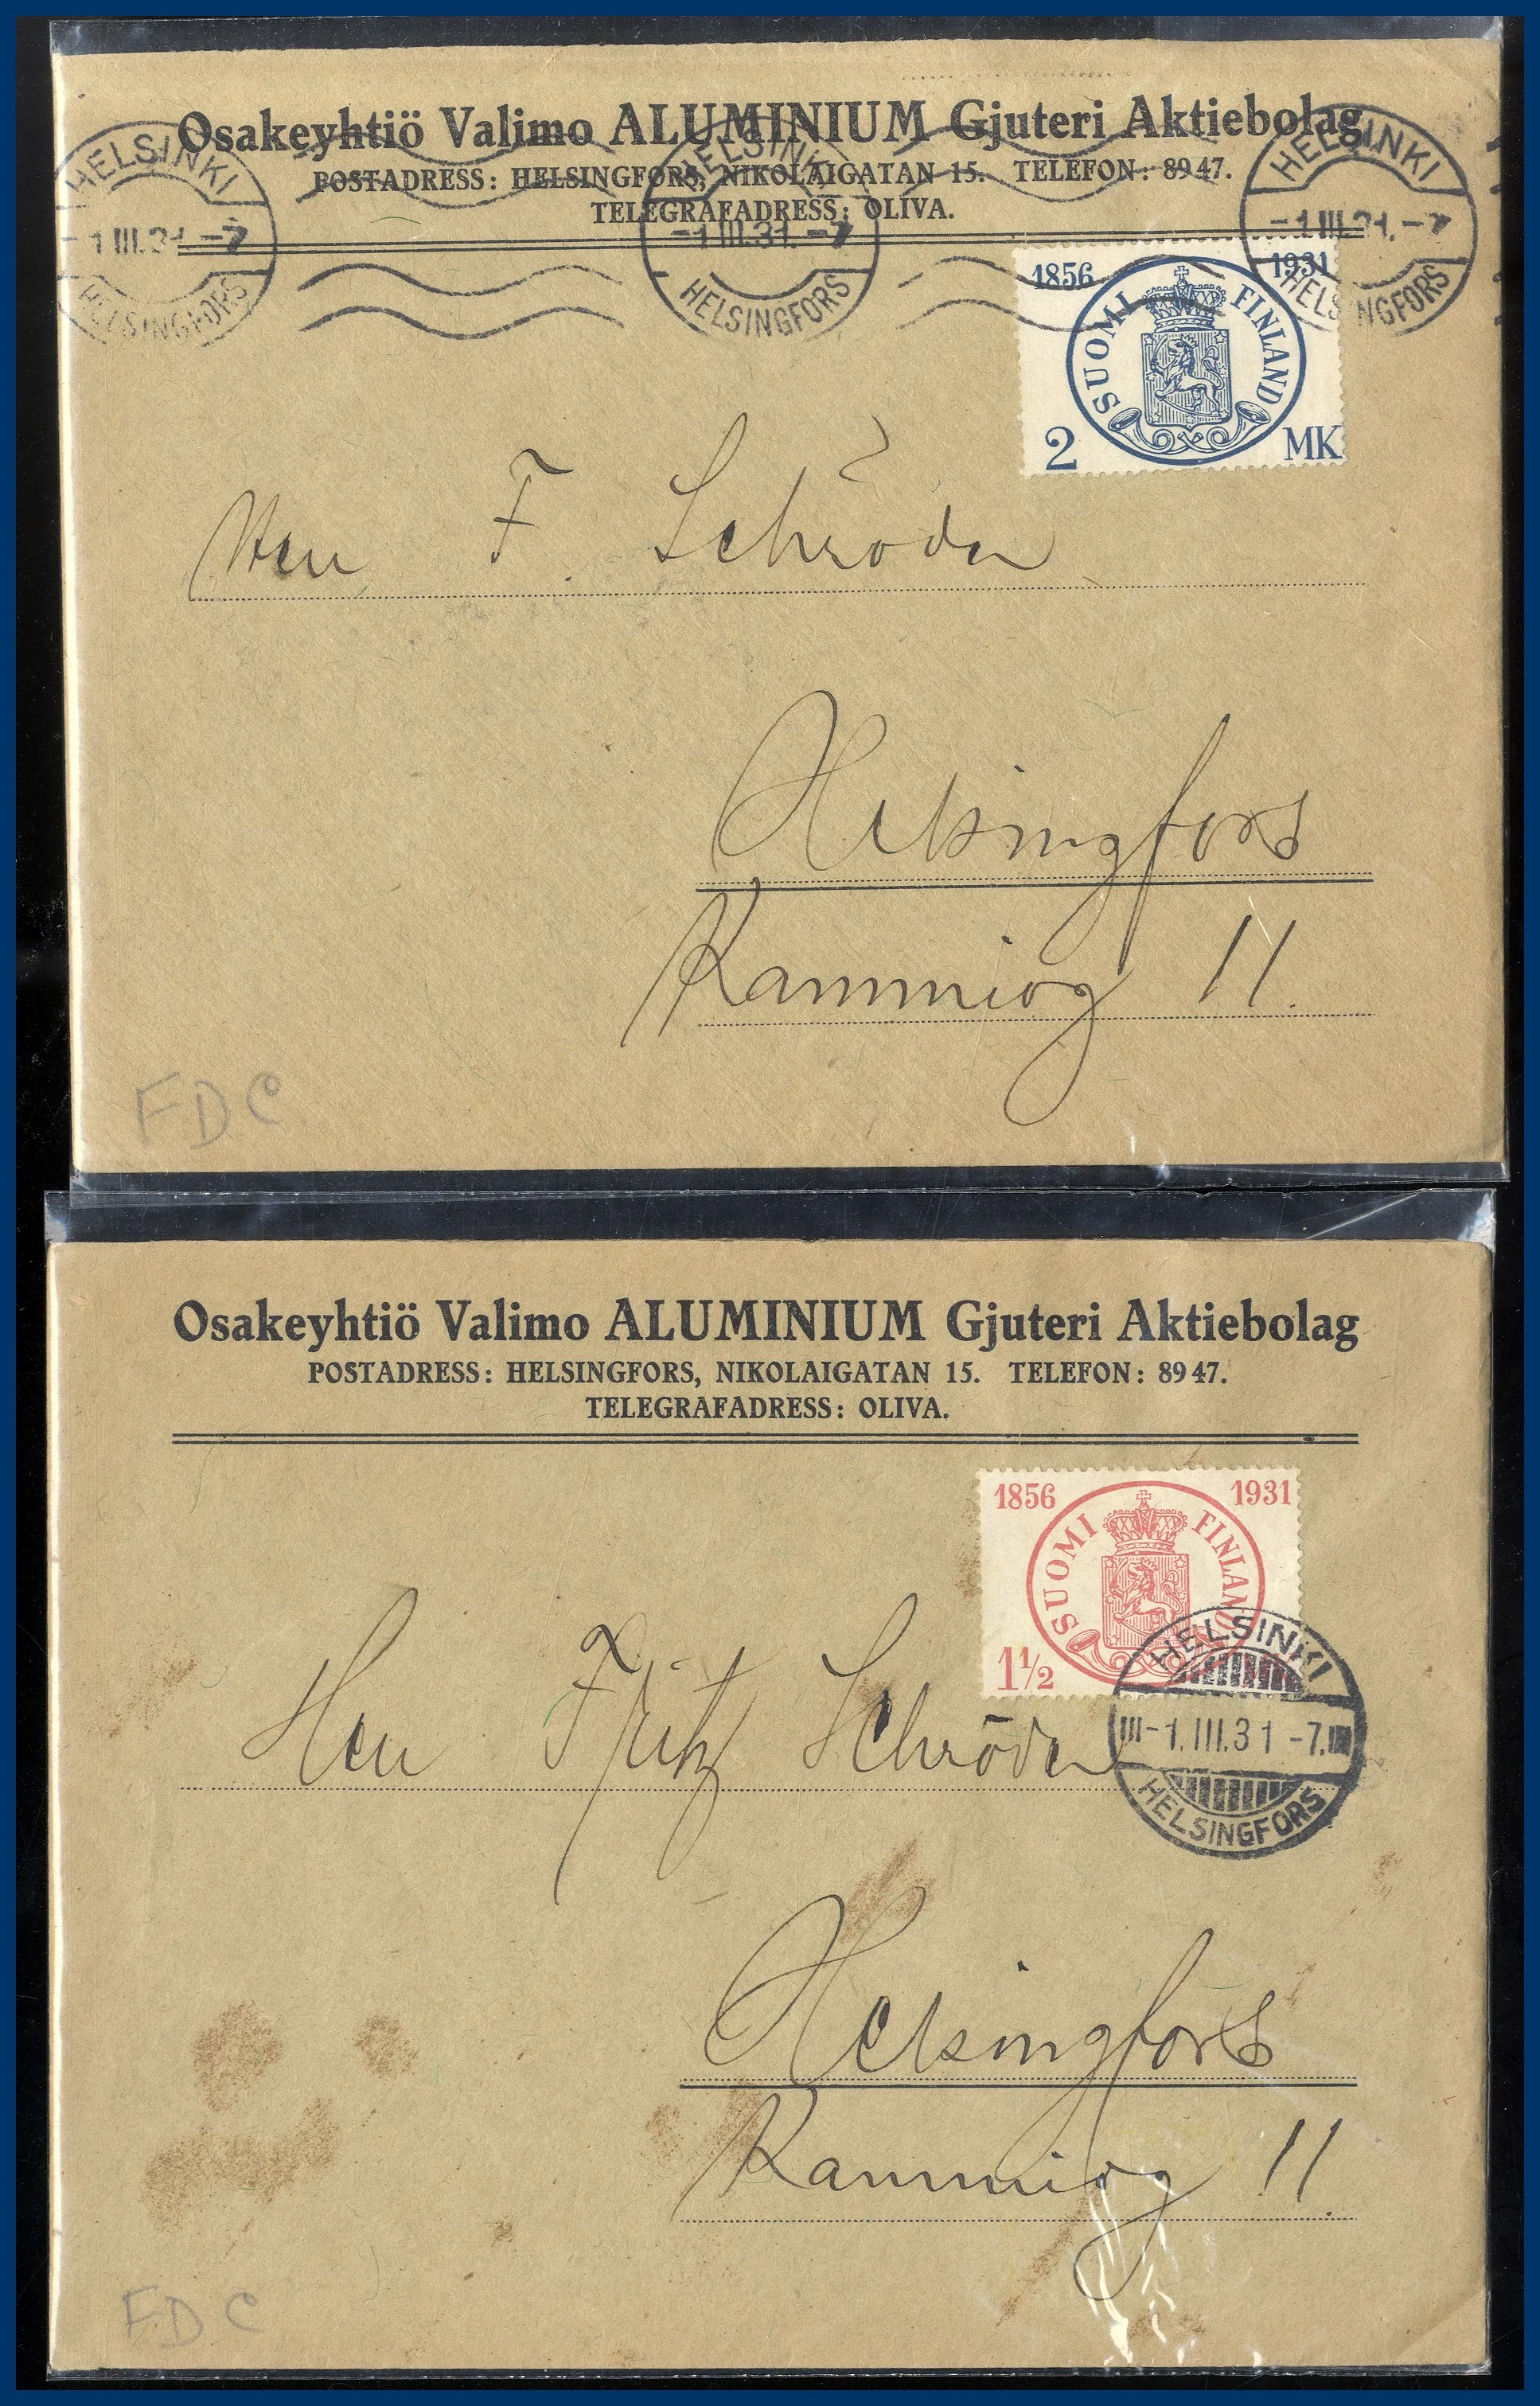 Osakeyhtiö Valimo ALUMINIUM Gjuteri Aktiebolag
POSTADRESS: HELSINGFORS, NIKOLAIGATAN 15. TELEFON: 8947.
TELEGRAFADRESS: OLIVA.
HELSINKI
-1.III.31.-7
HELSINGFORS
HELSINKI
-1.III.31.-7
HELSINGFORS
HELSINKI
-1.III.31.-7
HELSINGFORS
1856 1931
SUOMI FINLAND
2 MK
Herr F. Schröder
Helsingfors
Kammiog 11.
FDC
Osakeyhtiö Valimo ALUMINIUM Gjuteri Aktiebolag
POSTADRESS: HELSINGFORS, NIKOLAIGATAN 15. TELEFON: 8947.
TELEGRAFADRESS: OLIVA.
1856 1931
SUOMI FINLAND
1½
HELSINKI
-1.III.31-7.
HELSINGFORS
Herr Fritz Schröder
Helsingfors
Kammiog 11.
FDC